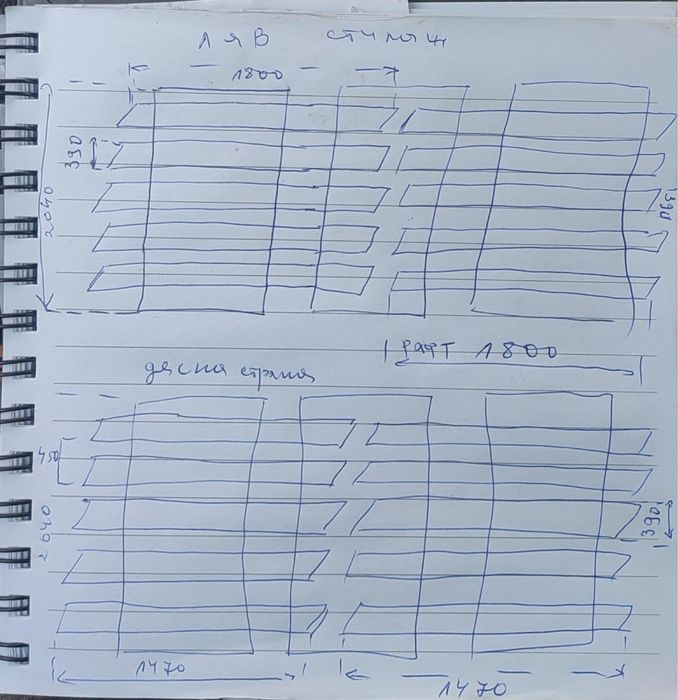 ляв стилаж
1800
390
2040
390
рафт 1800
дясна страна
450
2040
390
1470
1470